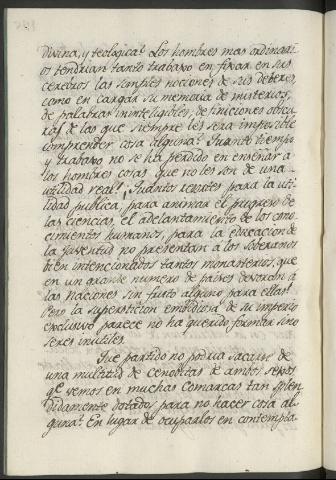 Divina, y teologica? Los hombres mas ordinari
os tendrian tanto trabajo en fixar en sus
cerebros las simples nociones de sus deberes,
como en cargar su memoria de misterios,
de palabras ininteligibles, de finiciones obscu
ras de las que siempre les sera imposible
comprender cosa alguna? Quanto tiempo
y trabajo no se ha perdido en enseñar a
los hombres cosas que no les son de una
utilidad real! ¿Quantos recursos para la uti
lidad publica, para animar el progreso de
las ciencias, el adelantamiento de los cono
cimientos humanos, para la educacion de
la juventud no presentan a los soberanos
bien intencionados tantos monasterios, que
en un grande numero de paises devoran à
las naciones sin fruto alguno para ellas?
Pero la supersticion embidiosa de su imperio
exclusivo parece no ha querido formar sino
seres inutiles.
Que partido no podria sacarse de
una multitud de cenobitas de ambos sexos
qe. vemos en muchas comarcas tan splen
didamente dotados para no hacer cosa al
guna? En lugar de ocuparlos en contempla-